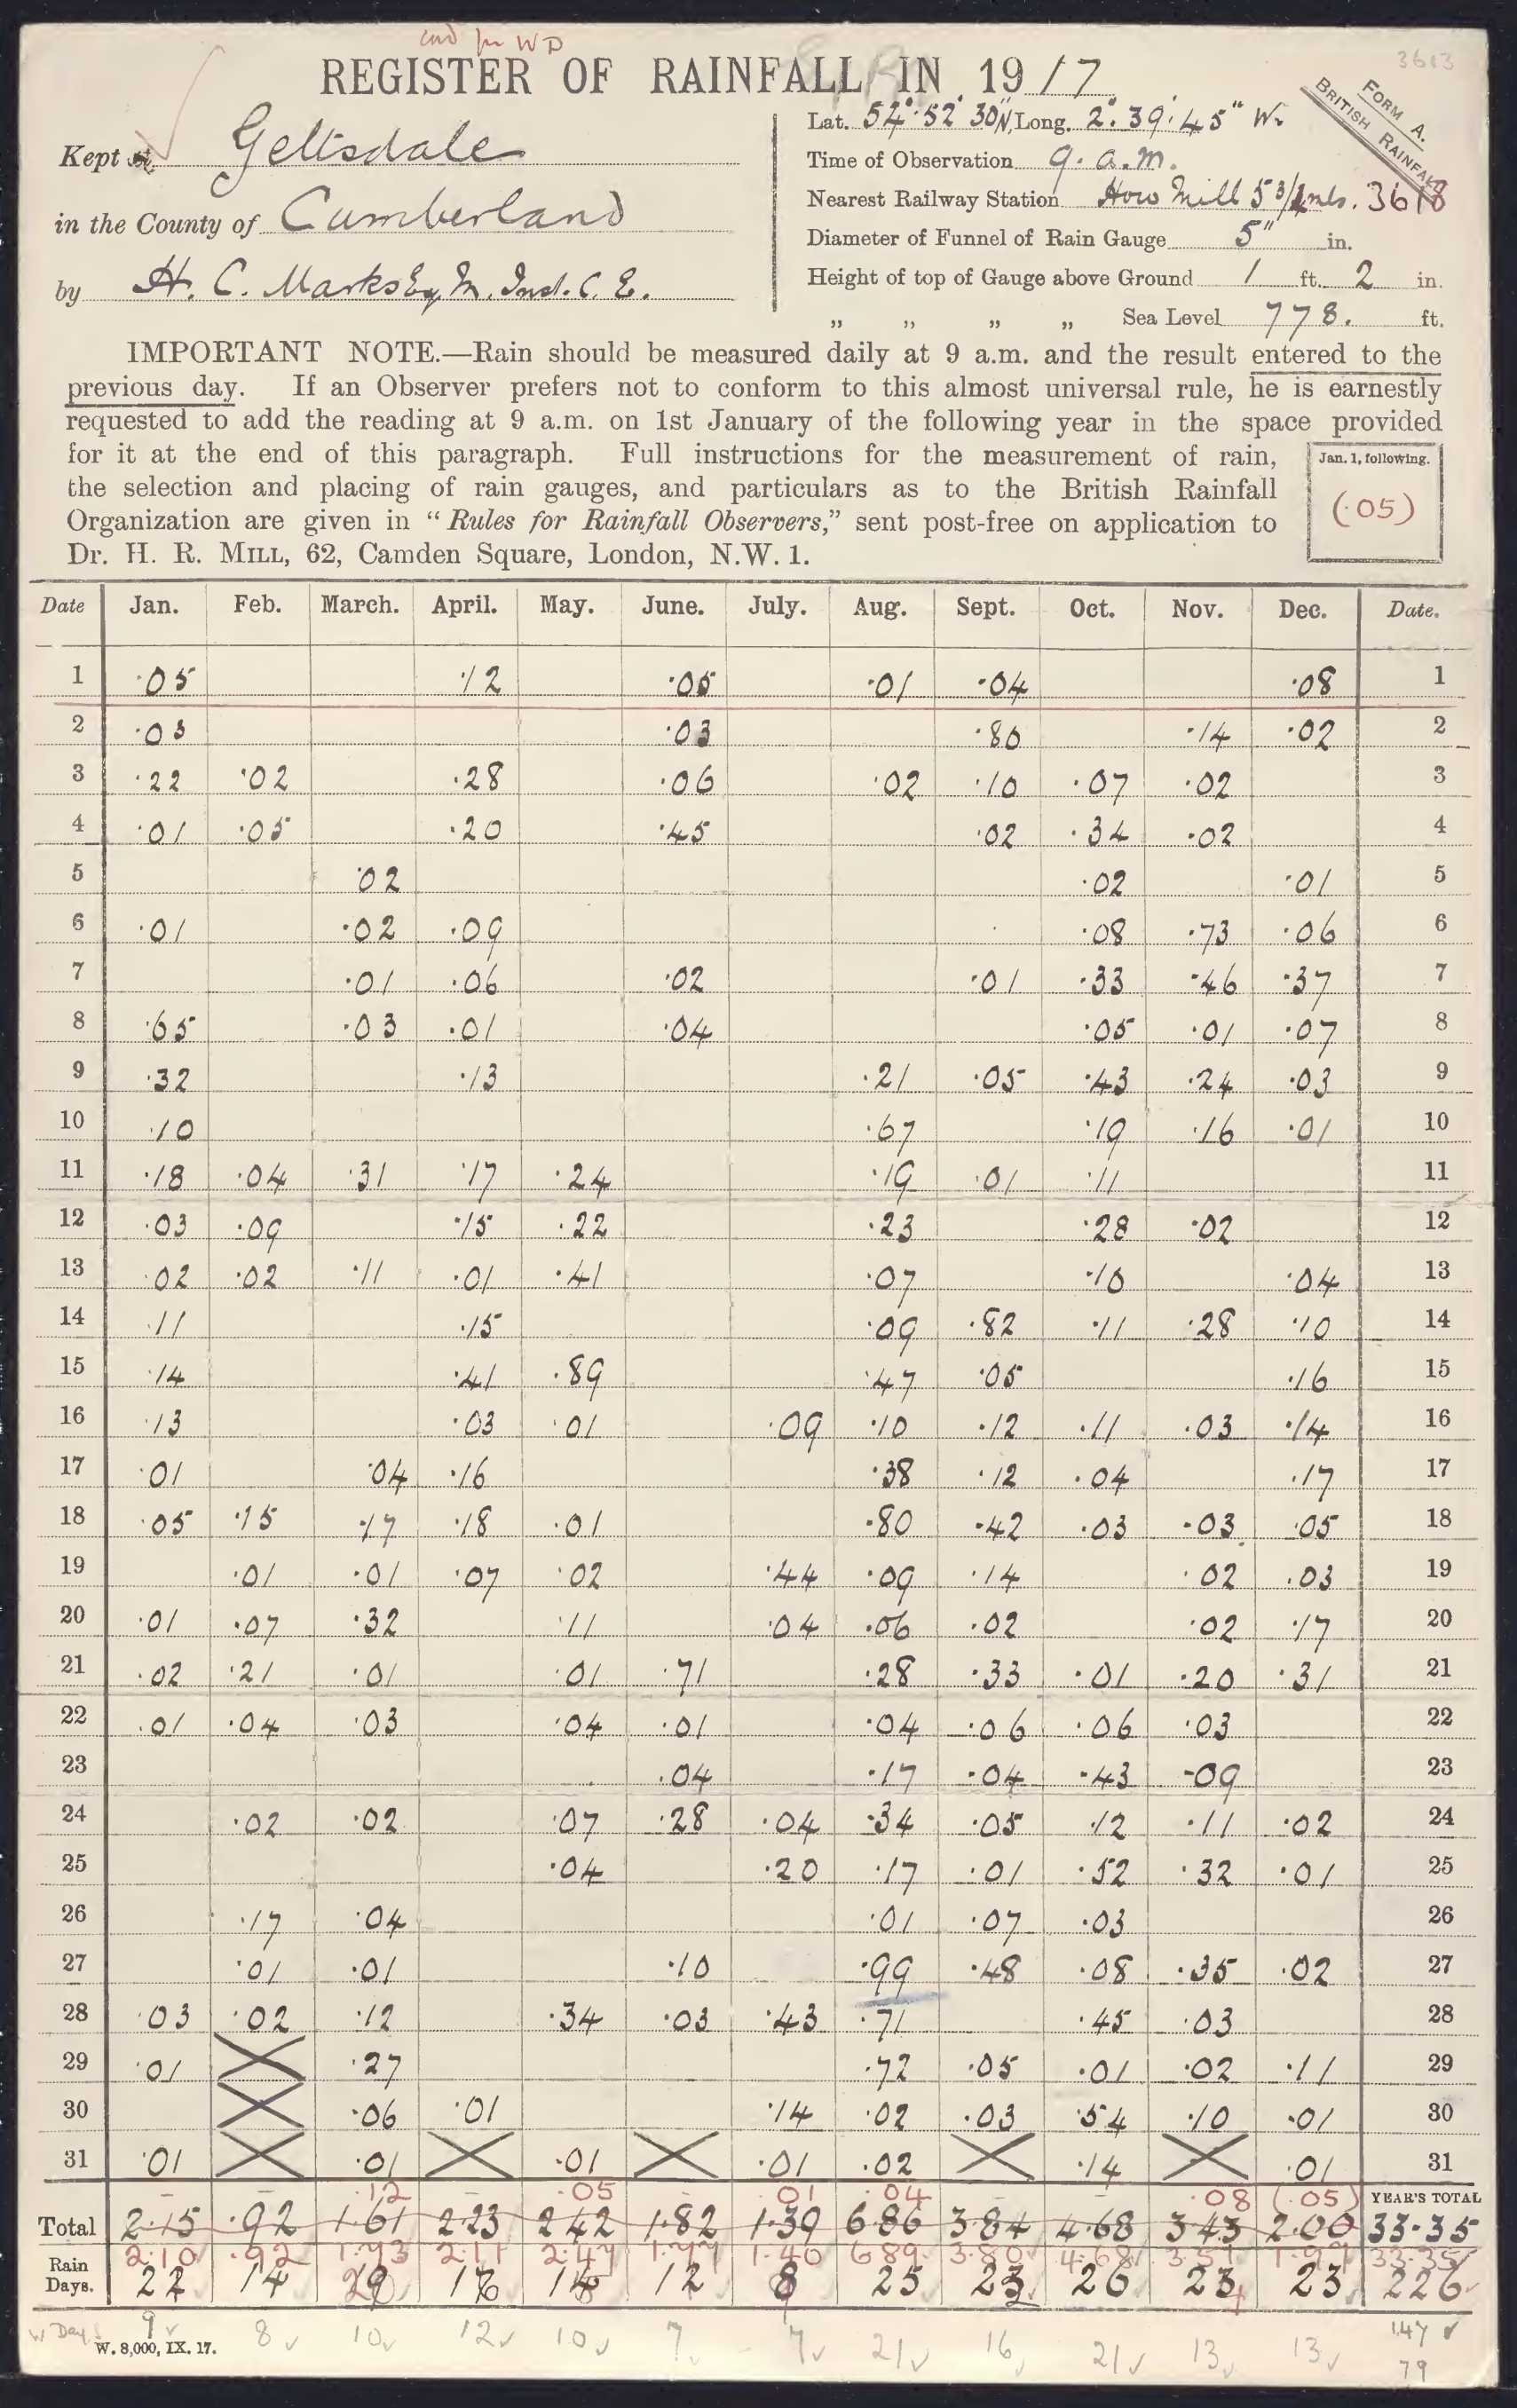 cmd for WD
3613
REGISTER OF RAINFALL IN 1917
FORM A.
BRITISH RAINFALL
Kept at Geltsdale
in the County of Cumberland
by H. C. Marks Esq. M. Inst. C. E.
Lat. 54°·52' 30"N, Long. 2°·39'·45" W.
Time of Observation 9. a.m.
Nearest Railway Station How Mill 5 3/4 mls. 3618
Diameter of Funnel of Rain Gauge 5" in.
Height of top of Gauge above Ground 1 ft. 2 in.
„ „ „ „ Sea Level 778. ft.
IMPORTANT NOTE.—Rain should be measured daily at 9 a.m. and the result entered to the
previous day. If an Observer prefers not to conform to this almost universal rule, he is earnestly
requested to add the reading at 9 a.m. on 1st January of the following year in the space provided
for it at the end of this paragraph. Full instructions for the measurement of rain,
the selection and placing of rain gauges, and particulars as to the British Rainfall
Organization are given in "Rules for Rainfall Observers," sent post-free on application to
Dr. H. R. MILL, 62, Camden Square, London, N.W. 1.
Jan. 1, following.
(·05)
Date Jan. Feb. March. April. May. June. July. Aug. Sept. Oct. Nov. Dec. Date.
1 ·05 ·12 ·05 ·01 ·04 ·08 1
2 ·03 ·03 ·80 ·14 ·02 2
3 ·22 ·02 ·28 ·06 ·02 ·10 ·07 ·02 3
4 ·01 ·05 ·20 ·45 ·02 ·34 ·02 4
5 ·02 ·02 ·01 5
6 ·01 ·02 ·09 ·08 ·73 ·06 6
7 ·01 ·06 ·02 ·01 ·33 ·46 ·37 7
8 ·65 ·03 ·01 ·04 ·05 ·01 ·07 8
9 ·32 ·13 ·21 ·05 ·43 ·24 ·03 9
10 ·10 ·67 ·19 ·16 ·01 10
11 ·18 ·04 ·31 ·17 ·24 ·19 ·01 ·11 11
12 ·03 ·09 ·15 ·22 ·23 ·28 ·02 12
13 ·02 ·02 ·11 ·01 ·41 ·07 ·10 ·04 13
14 ·11 ·15 ·09 ·82 ·11 ·28 ·10 14
15 ·14 ·41 ·89 ·47 ·05 ·16 15
16 ·13 ·03 ·01 ·09 ·10 ·12 ·11 ·03 ·14 16
17 ·01 ·04 ·16 ·38 ·12 ·04 ·17 17
18 ·05 ·15 ·17 ·18 ·01 ·80 ·42 ·03 ·03 ·05 18
19 ·01 ·01 ·07 ·02 ·44 ·09 ·14 ·02 ·03 19
20 ·01 ·07 ·32 ·11 ·04 ·06 ·02 ·02 ·17 20
21 ·02 ·21 ·01 ·01 ·71 ·28 ·33 ·01 ·20 ·31 21
22 ·01 ·04 ·03 ·04 ·01 ·04 ·06 ·06 ·03 22
23 ·04 ·17 ·04 ·43 ·09 23
24 ·02 ·02 ·07 ·28 ·04 ·34 ·05 ·12 ·11 ·02 24
25 ·04 ·20 ·17 ·01 ·52 ·32 ·01 25
26 ·17 ·04 ·01 ·07 ·03 26
27 ·01 ·01 ·10 ·99 ·48 ·08 ·35 ·02 27
28 ·03 ·02 ·12 ·34 ·03 ·43 ·71 ·45 ·03 28
29 ·01 ·27 ·72 ·05 ·01 ·02 ·11 29
30 ·06 ·01 ·14 ·02 ·03 ·54 ·10 ·01 30
31 ·01 ·01 ·01 ·01 ·02 ·14 ·01 31
·12 ·05 ·01 ·04 ·08 (·05) YEAR'S TOTAL
Total 2·15 ·92 1·61 2·23 2·42 1·82 1·39 6·86 3·84 4·68 3·43 2·00 33·35
2·10 ·92 1·73 2·11 2·47 1·77 1·40 6·89 3·80 4·68 3·51 1·97 33·35
Rain Days. 22 14 12 25 26 23 226
W Days 9 8 10 12 10 7 7 21 16 21 13 13 147
W. 8,000, IX. 17.
79